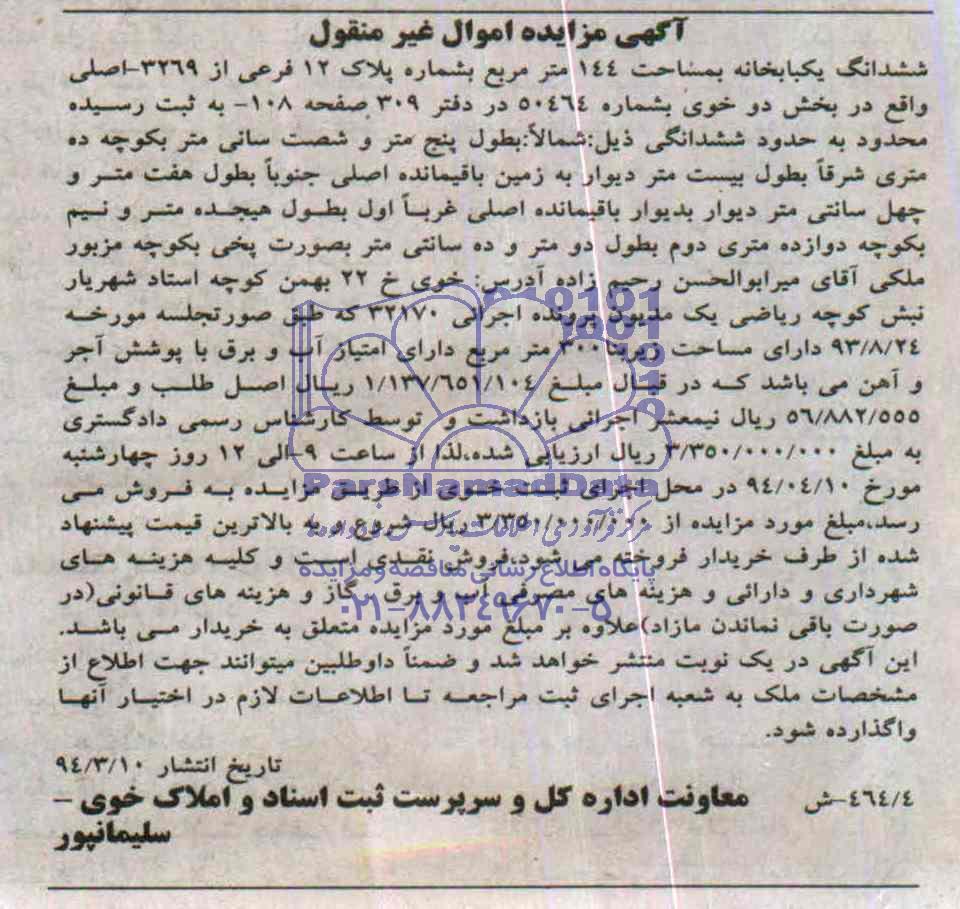 آگهی مزایده اموال غیر منقول
ششدانگ یکبابخانه بمساحت ١٤٤ متر مربع بشماره پلاک ١٢ فرعی از ٣٢٦٩-اصلی
واقع در بخش دو خوی بشماره ٥٠٤٦٤ در دفتر ٣٠٩ صفحه ١٠٨- به ثبت رسیده
محدود به حدود ششدانگی ذیل:شمالاً:بطول پنج متر و شصت سانی متر بکوچه ده
متری شرقاً بطول بیست متر دیوار به زمین باقیمانده اصلی جنوباً بطول هفت متر و
چهل سانتی متر دیوار بدیوار باقیمانده اصلی غرباً اول بطول هیجده متر و نیم
بکوچه دوازده متری دوم بطول دو متر و ده سانتی متر بصورت پخی بکوچه مزبور
ملکی آقای میرابوالحسن رحیم زاده آدرس: خوی خ ٢٢ بهمن کوچه استاد شهریار
نبش کوچه ریاضی یک مدیون پرونده اجرائی ٣٢١٧٠ که طبق صورتجلسه مورخه
٩٣/٨/٢٤ دارای مساحت زیربنا ٣٠٠ متر مربع دارای امتیاز آب و برق با پوشش آجر
و آهن می باشد که در قبال مبلغ ١/١٣٧/٦٥١/١٠٤ ریال اصل طلب و مبلغ
٥٦/٨٨٢/٥٥٥ ریال نیمعشر اجرائی بازداشت و توسط کارشناس رسمی دادگستری
به مبلغ ٣/٣٥٠/٠٠٠/٠٠٠ ریال ارزیابی شده،لذا از ساعت ٩-الی ١٢ روز چهارشنبه
مورخ ٩٤/٠٤/١٠ در محل اجرای ثبت خوی از طریق مزایده به فروش می
رسد،مبلغ مورد مزایده از ٣/٣٥٠/٠٠٠/٠٠٠ ریال شروع و به بالاترین قیمت پیشنهاد
شده از طرف خریدار فروخته می شود،فروش نقدی است و کلیه هزینه های
شهرداری و دارائی و هزینه های مصرفی آب و برق و گاز و هزینه های قانونی(در
صورت باقی نماندن مازاد)علاوه بر مبلغ مورد مزایده متعلق به خریدار می باشد.
این آگهی در یک نوبت منتشر خواهد شد و ضمناً داوطلبین میتوانند جهت اطلاع از
مشخصات ملک به شعبه اجرای ثبت مراجعه تا اطلاعات لازم در اختیار آنها
واگذارده شود.
تاریخ انتشار ٩٤/٣/١٠
٤٦٤/٤-ش معاونت اداره کل و سرپرست ثبت اسناد و املاک خوی –
سلیمانپور
ParsNamadData
پایگاه اطلاع رسانی مناقصه و مزایده
۰۲۱-۸۸۳۴۹۶۷۰-۵